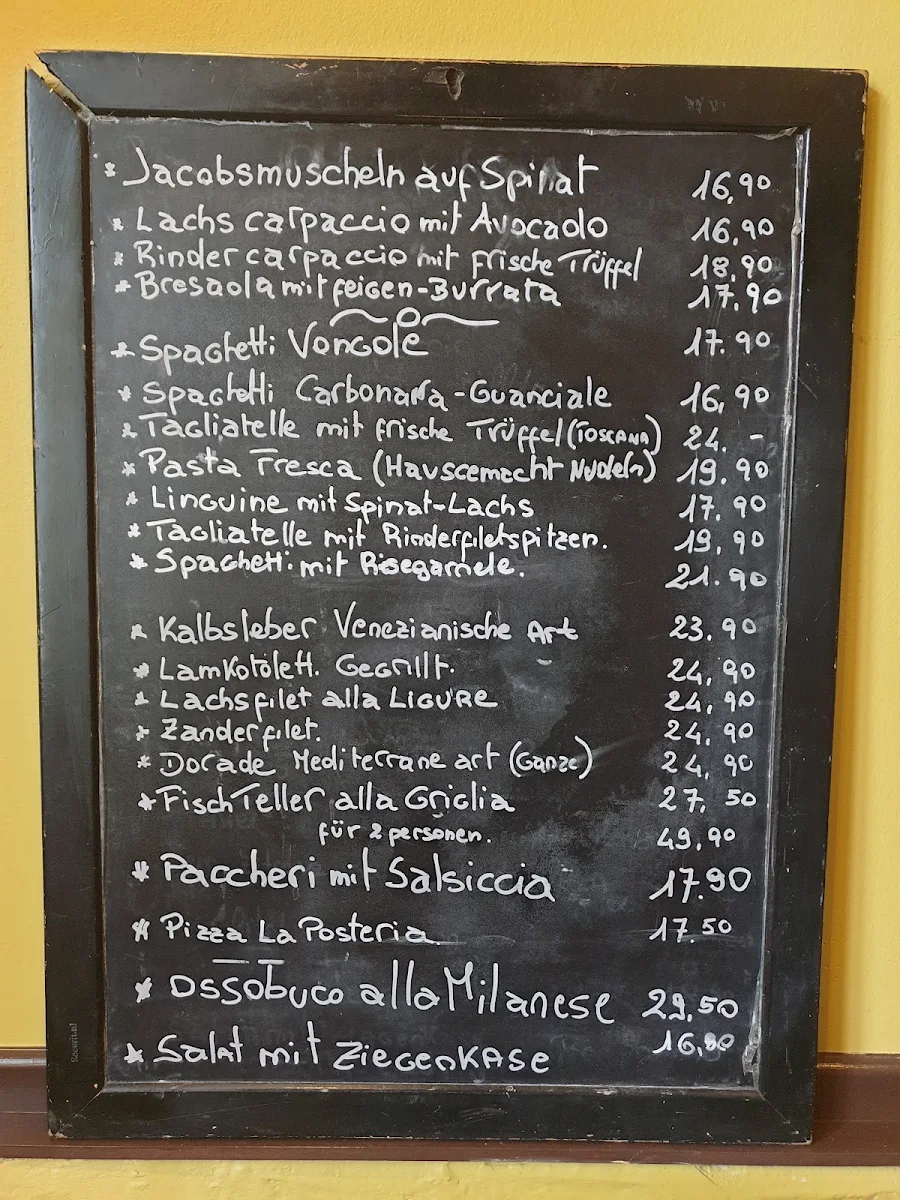 * Jacobsmuscheln auf Spinat 16,90
* Lachs carpaccio mit Avocado 16,90
* Rinder carpaccio mit frische Trüffel 18,90
* Bresaola mit feigen-Burrata 17,90
* Spaghetti Vongole 17.90
* Spaghetti Carbonara-Guanciale 16,90
* Tagliatelle mit frische Trüffel (TOSCANA) 24. -
* Pasta Fresca (Hausgemacht Nudeln) 19.90
* Linguine mit Spinat-Lachs 17.90
* Tagliatelle mit Rinderfiletspitzen. 19,90
* Spaghetti mit Risegarnele. 21.90
* Kalbsleber Venezianische Art 23.90
* Lamkotolett. Gegrillt. 24,90
* Lachsfilet alla LIGURE 24,90
* Zanderfilet. 24,90
* Dorade Mediterrane art (Ganze) 24,90
* Fisch Teller alla Griglia 27,50
für 2 personen. 49,90
* Paccheri mit Salsiccia 17.90
* Pizza La Posteria 17.50
* Ossobuco alla Milanese 29,50
* Salat mit ZIEGENKASE 16,90
Securit.nl